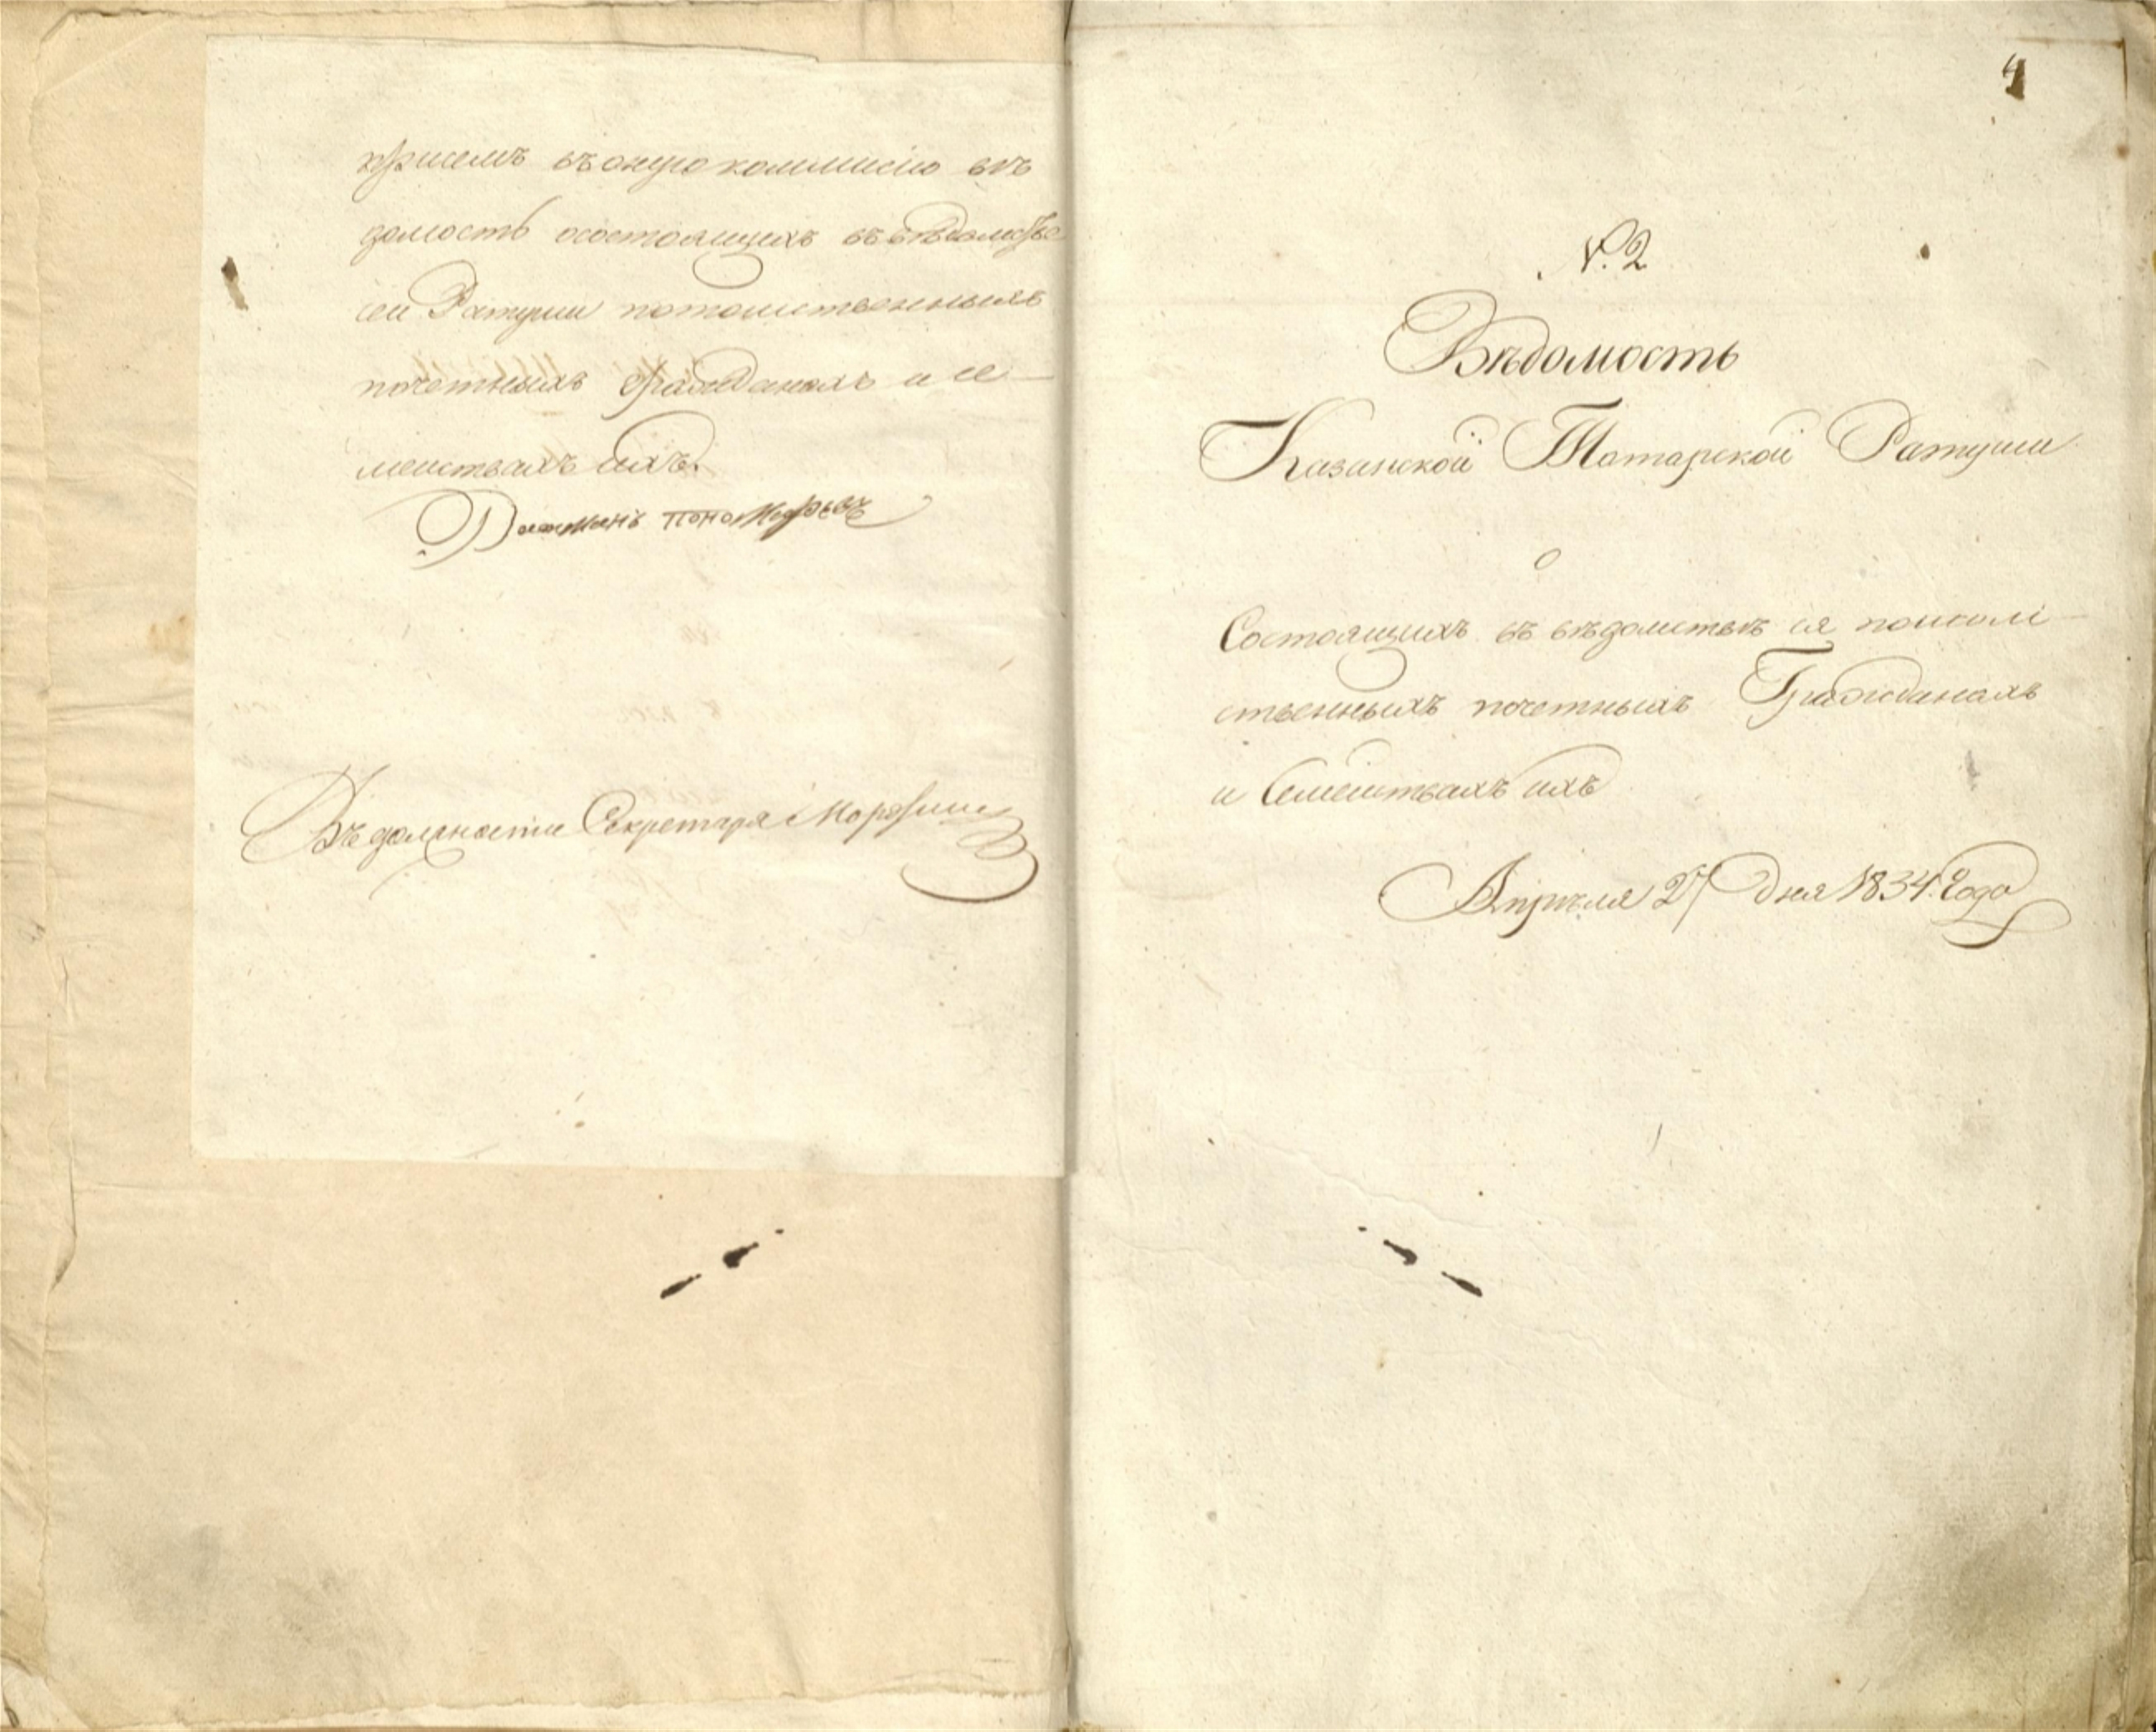 при семъ въ оную коммисію вѣ
домость о состоящихъ въ вѣдомстве
сей Ратуши потомственныхъ
почетныхъ Гражданахъ и се
мействахъ ихъ.
Въ должности Секретаря
4
N. 2
Вѣдомость
Казанской Татарской Ратуши
о
Состоящихъ въ вѣдомствѣ ея потом
ственныхъ почетныхъ Гражданахъ
и Семействахъ ихъ
Апрѣля 27 Дня 1834. Года